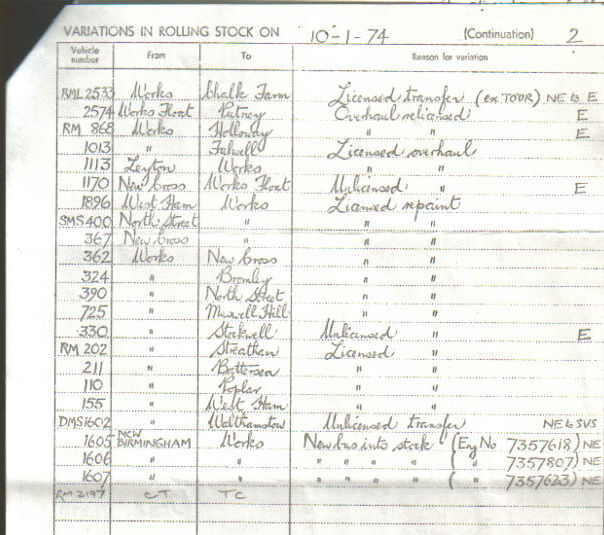 VARIATIONS IN ROLLING STOCK ON 10-1-74 (Continuation) 2
Vehicle number From To Reason for variation
RML 2533 Works Chalk Farm Licensed transfer (ex TOUR) NE to E
2574 Works Float Putney Overhaul relicensed E
RM 868 Works Holloway " " E
1013 " Fulwell Licensed overhaul
1113 Leyton Works " "
1170 New Cross Works Float Unlicensed " E
1896 West Ham Works Licensed repaint
SMS 400 North Street " " "
367 New Cross " " "
362 Works New Cross " "
324 " Bromley " "
390 " North Street " "
725 " Muswell Hill " "
330 " Stockwell Unlicensed " E
RM 202 " Streatham Licensed "
211 " Battersea " "
110 " Poplar " "
155 " West Ham " "
DMS 1602 " Walthamstow Unlicensed transfer NE to SVS
1605 MCW BIRMINGHAM Works New bus into stock (Eng No 7357618) NE
1606 " " " " " " ( " 7357807) NE
1607 " " " " " " ( " 7357623) NE
RM 2197 CT TC